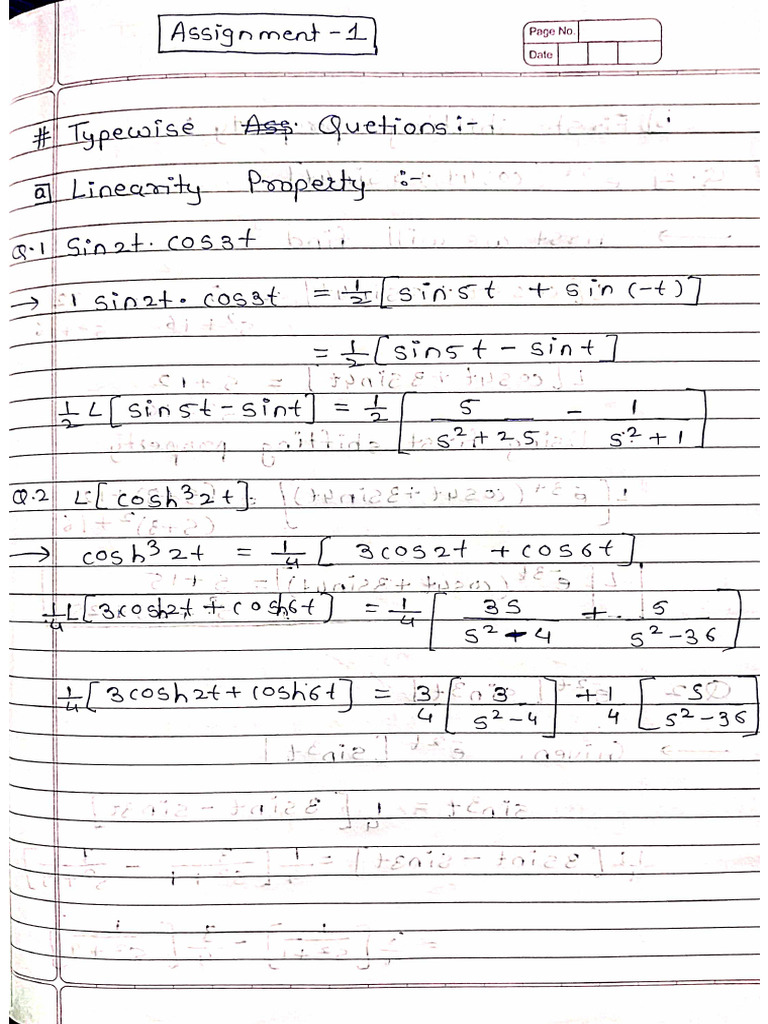 Assignment - 1
Page No.
Date
# Typewise Quetions :-
a] Linearity Property :-
Q.1 Sin2t. cos3t
→ 1 sin2t. cos3t = 1/2 [sin5t + sin(-t)]
= 1/2 [sin5t - sint]
1/2 L[sin5t - sint] = 1/2 [5/(s²+25) - 1/(s²+1)]
Q.2 L[cosh³2t].
→ cosh³2t = 1/4 [3cos2t + cos6t]
1/4 L[3cosh2t + cosh6t] = 1/4 [3s/(s²-4) + s/(s²-36)]
1/4 [3cosh2t + cosh6t] = 3/4 [s/(s²-4)] + 1/4 [s/(s²-36)]